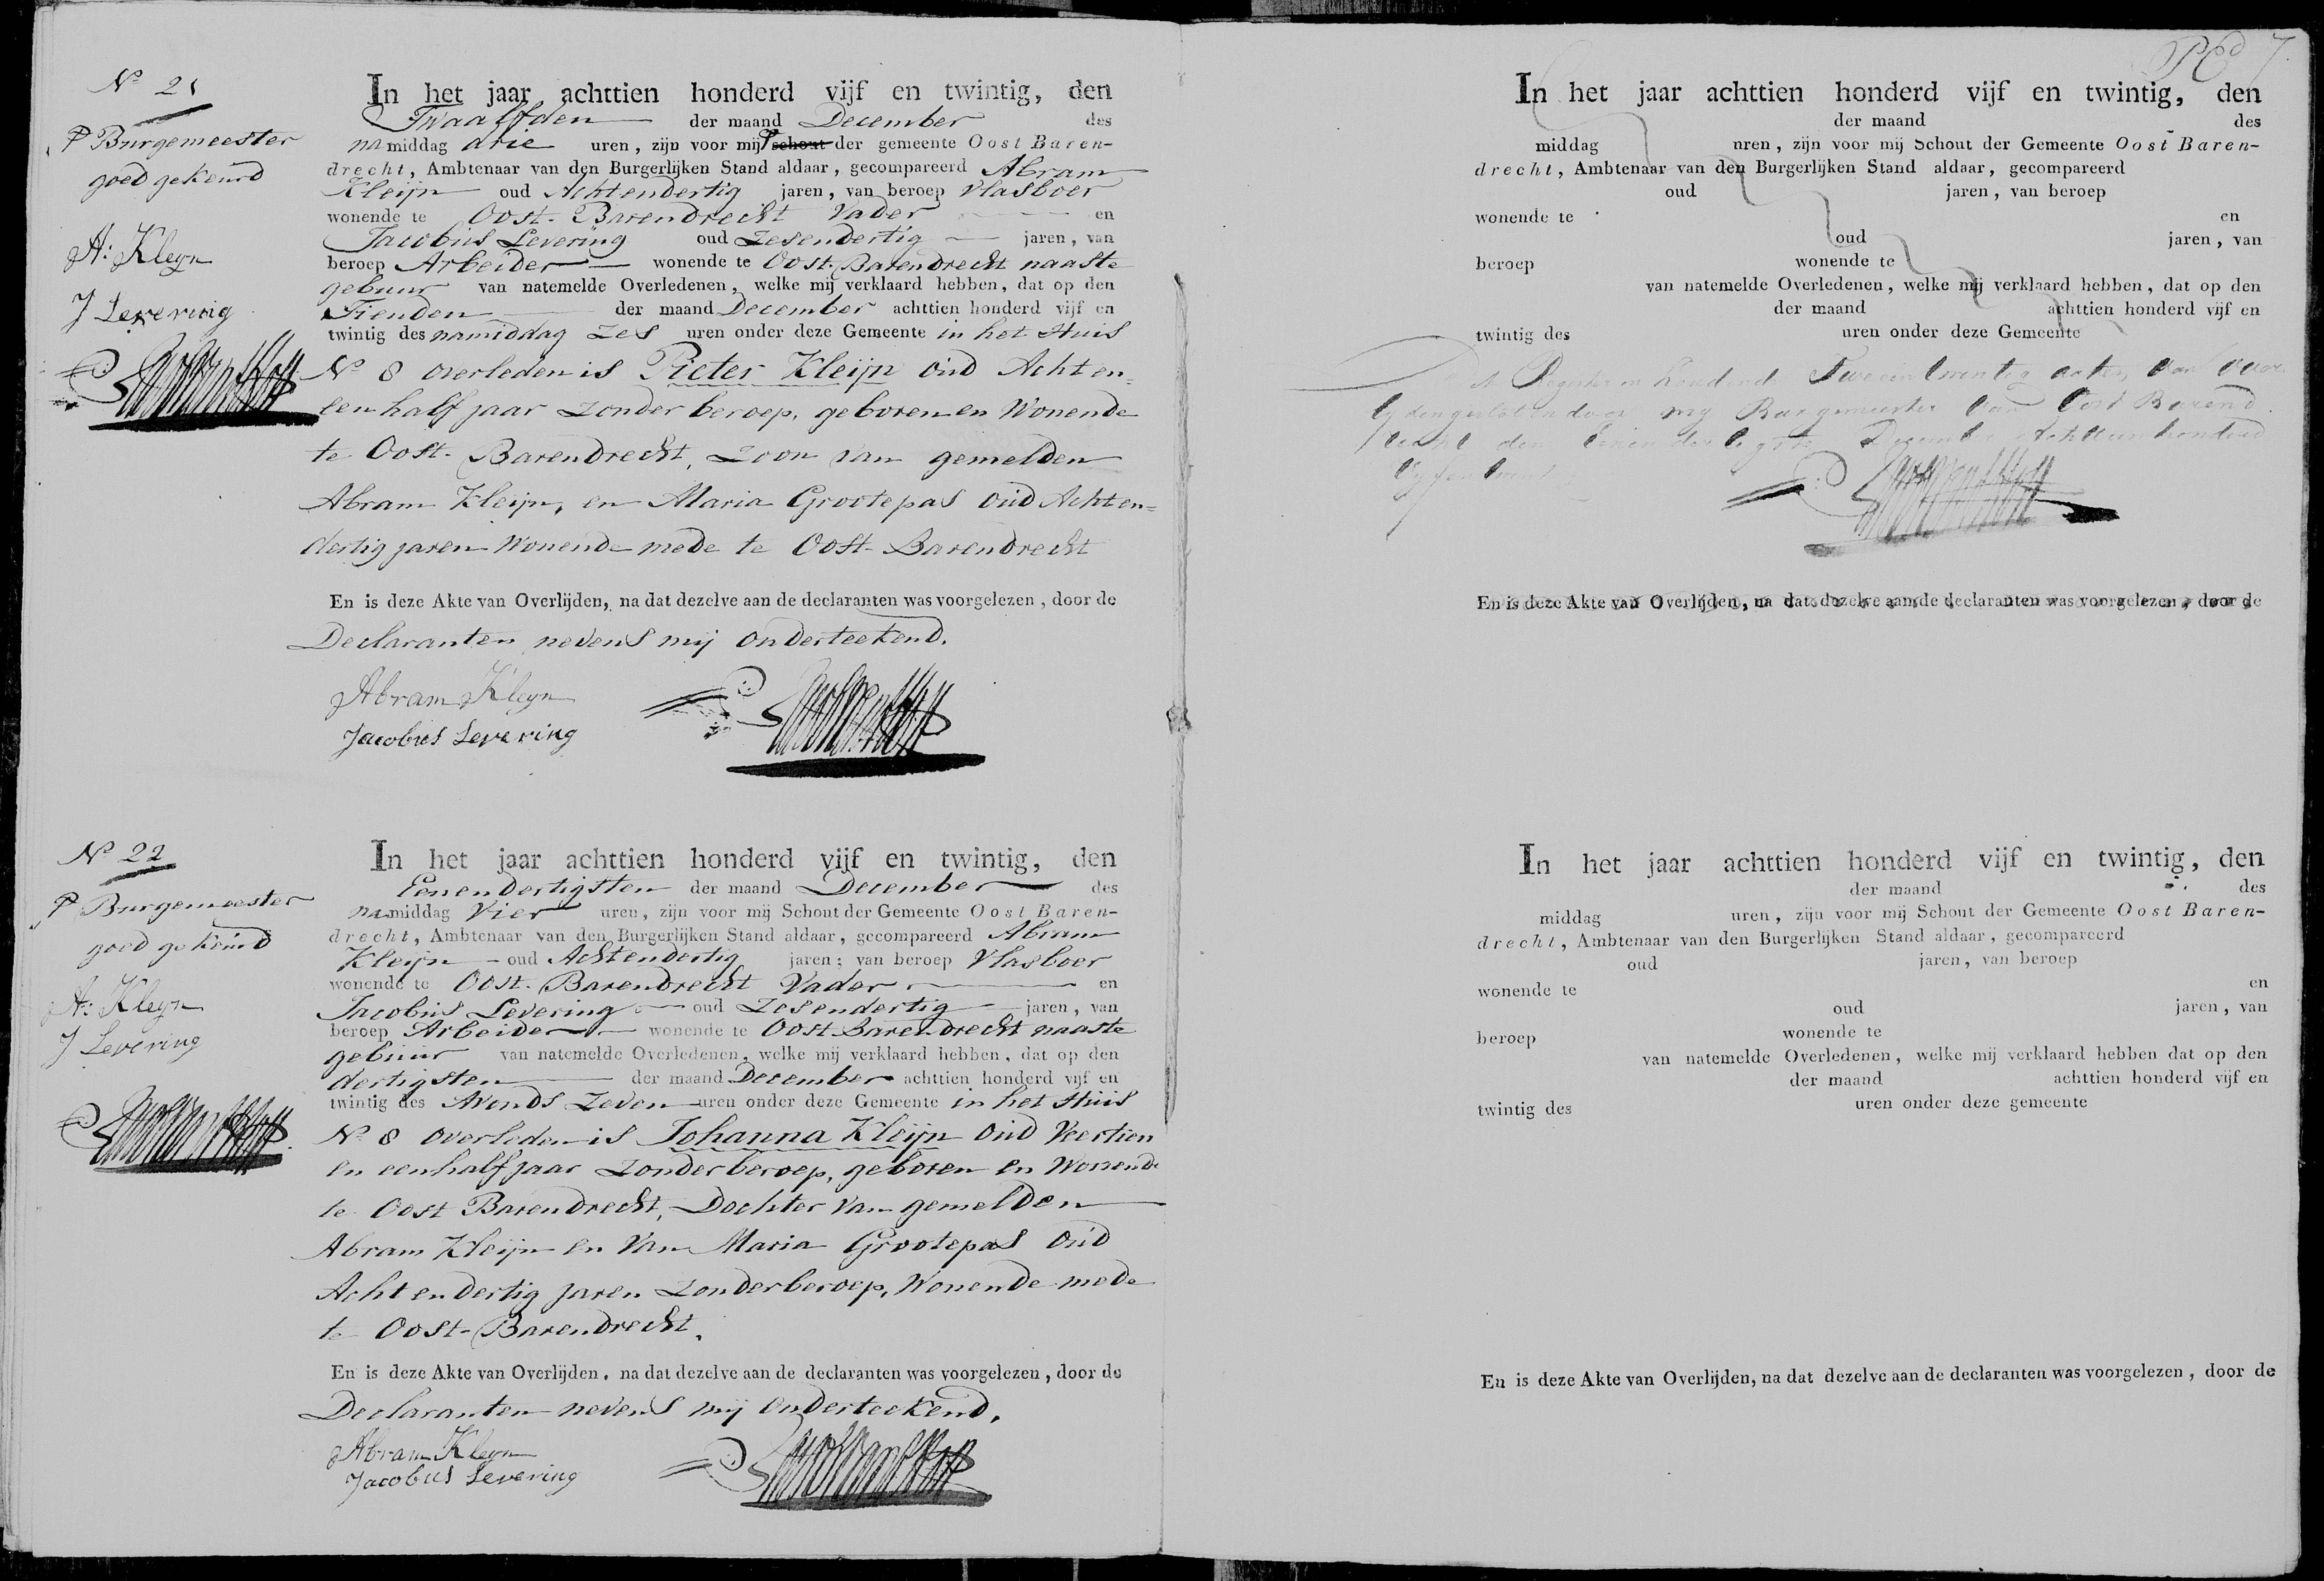 No 21
Burgemeester
goed gekeurd
A: Kleyn
J Levering
In het jaar achttien honderd vijf en twintig, den
Twaalfden der maand December des
namiddag drie uren, zijn voor mij schout der gemeente Oost Baren-
drecht, Ambtenaar van den Burgerlijken Stand aldaar, gecompareerd Abram
Kleijn oud Achtendertig jaren, van beroep Vlasboer
wonende te Oost-Barendrecht Vader en
Jacobus Levering oud Zesendertig jaren, van
beroep Arbeider wonende te Oost-Barendrecht naaste
gebuur van natemelde Overledenen, welke mij verklaard hebben, dat op den
Tienden der maand December achttien honderd vijf en
twintig des namiddag zes uren onder deze Gemeente in het Huis
No 8 overleden is Pieter Kleijn oud Acht en
een half jaar zonder beroep, geboren en Wonende
te Oost-Barendrecht, zoon van gemelden
Abram Kleijn, en Maria Grootepas oud Achten=
dertig jaren Wonende mede te Oost-Barendrecht
En is deze Akte van Overlijden, na dat dezelve aan de declaranten was voorgelezen, door de
Declaranten nevens mij onderteekend.
Abram Kleyn
Jacobus Levering
No 22
Burgemeester
goed gekeurd
A: Kleyn
J Levering
In het jaar achttien honderd vijf en twintig, den
Eenendertigsten der maand December des
namiddag Vier uren, zijn voor mij Schout der Gemeente Oost Baren-
drecht, Ambtenaar van den Burgerlijken Stand aldaar, gecompareerd Abram
Kleijn oud Achtendertig jaren; van beroep Vlasboer
wonende te Oost-Barendrecht Vader en
Jacobus Levering oud Zesendertig jaren, van
beroep Arbeider wonende te Oost Barendrecht naaste
gebuur van natemelde Overledenen, welke mij verklaard hebben, dat op den
dertigsten der maand December achttien honderd vijf en
twintig des Avonds Zeven uren onder deze Gemeente in het Huis
No 8 overleden is Johanna Kleijn oud Veertien
en een half jaar zonder beroep, geboren en Wonende
te Oost Barendrecht, Dochter van gemelden
Abram Kleijn en Van Maria Grootepas oud
Acht en dertig jaren zonder beroep, Wonende mede
te Oost-Barendrecht.
En is deze Akte van Overlijden, na dat dezelve aan de declaranten was voorgelezen, door de
Declaranten nevens mij Onderteekend.
Abram Kleyn
Jacobus Levering
7
In het jaar achttien honderd vijf en twintig, den
der maand des
middag uren, zijn voor mij Schout der Gemeente Oost Baren-
drecht, Ambtenaar van den Burgerlijken Stand aldaar, gecompareerd
oud jaren, van beroep
wonende te en
oud jaren, van
beroep wonende te
van natemelde Overledenen, welke mij verklaard hebben, dat op den
der maand achttien honderd vijf en
twintig des uren onder deze Gemeente
Dit Register in houdende Tweeentwintig acten van over
lyden gesloten door my Burgemeester van Oost Barend
recht den Eenendertigste December Achttienhonderd
vyfentwintig
En is deze Akte van Overlijden, na dat dezelve aan de declaranten was voorgelezen, door de
In het jaar achttien honderd vijf en twintig, den
der maand des
middag uren, zijn voor mij Schout der Gemeente Oost Baren-
drecht, Ambtenaar van den Burgerlijken Stand aldaar, gecompareerd
oud jaren, van beroep
wonende te en
oud jaren, van
beroep wonende te
van natemelde Overledenen, welke mij verklaard hebben dat op den
der maand achttien honderd vijf en
twintig des uren onder deze gemeente
En is deze Akte van Overlijden, na dat dezelve aan de declaranten was voorgelezen, door de